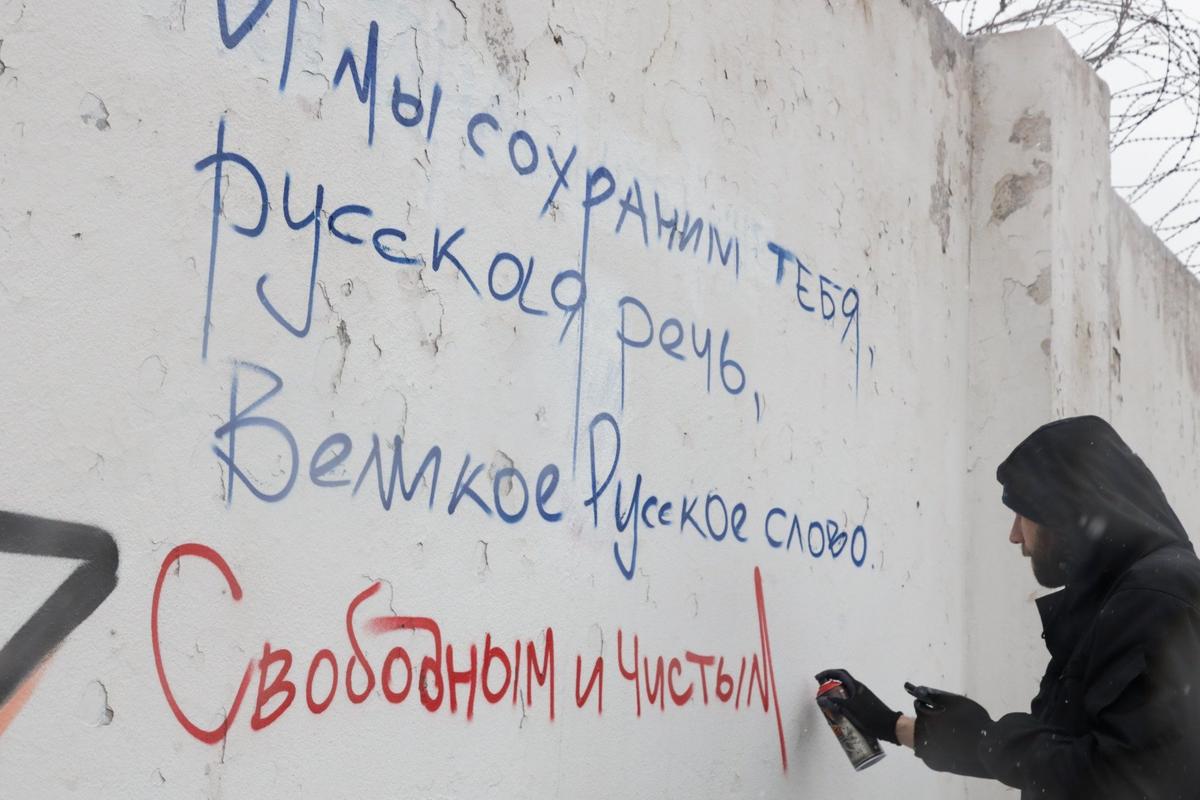 И мы сохраним тебя,
русская речь,
Великое Русское слово.
Свободным и чистым